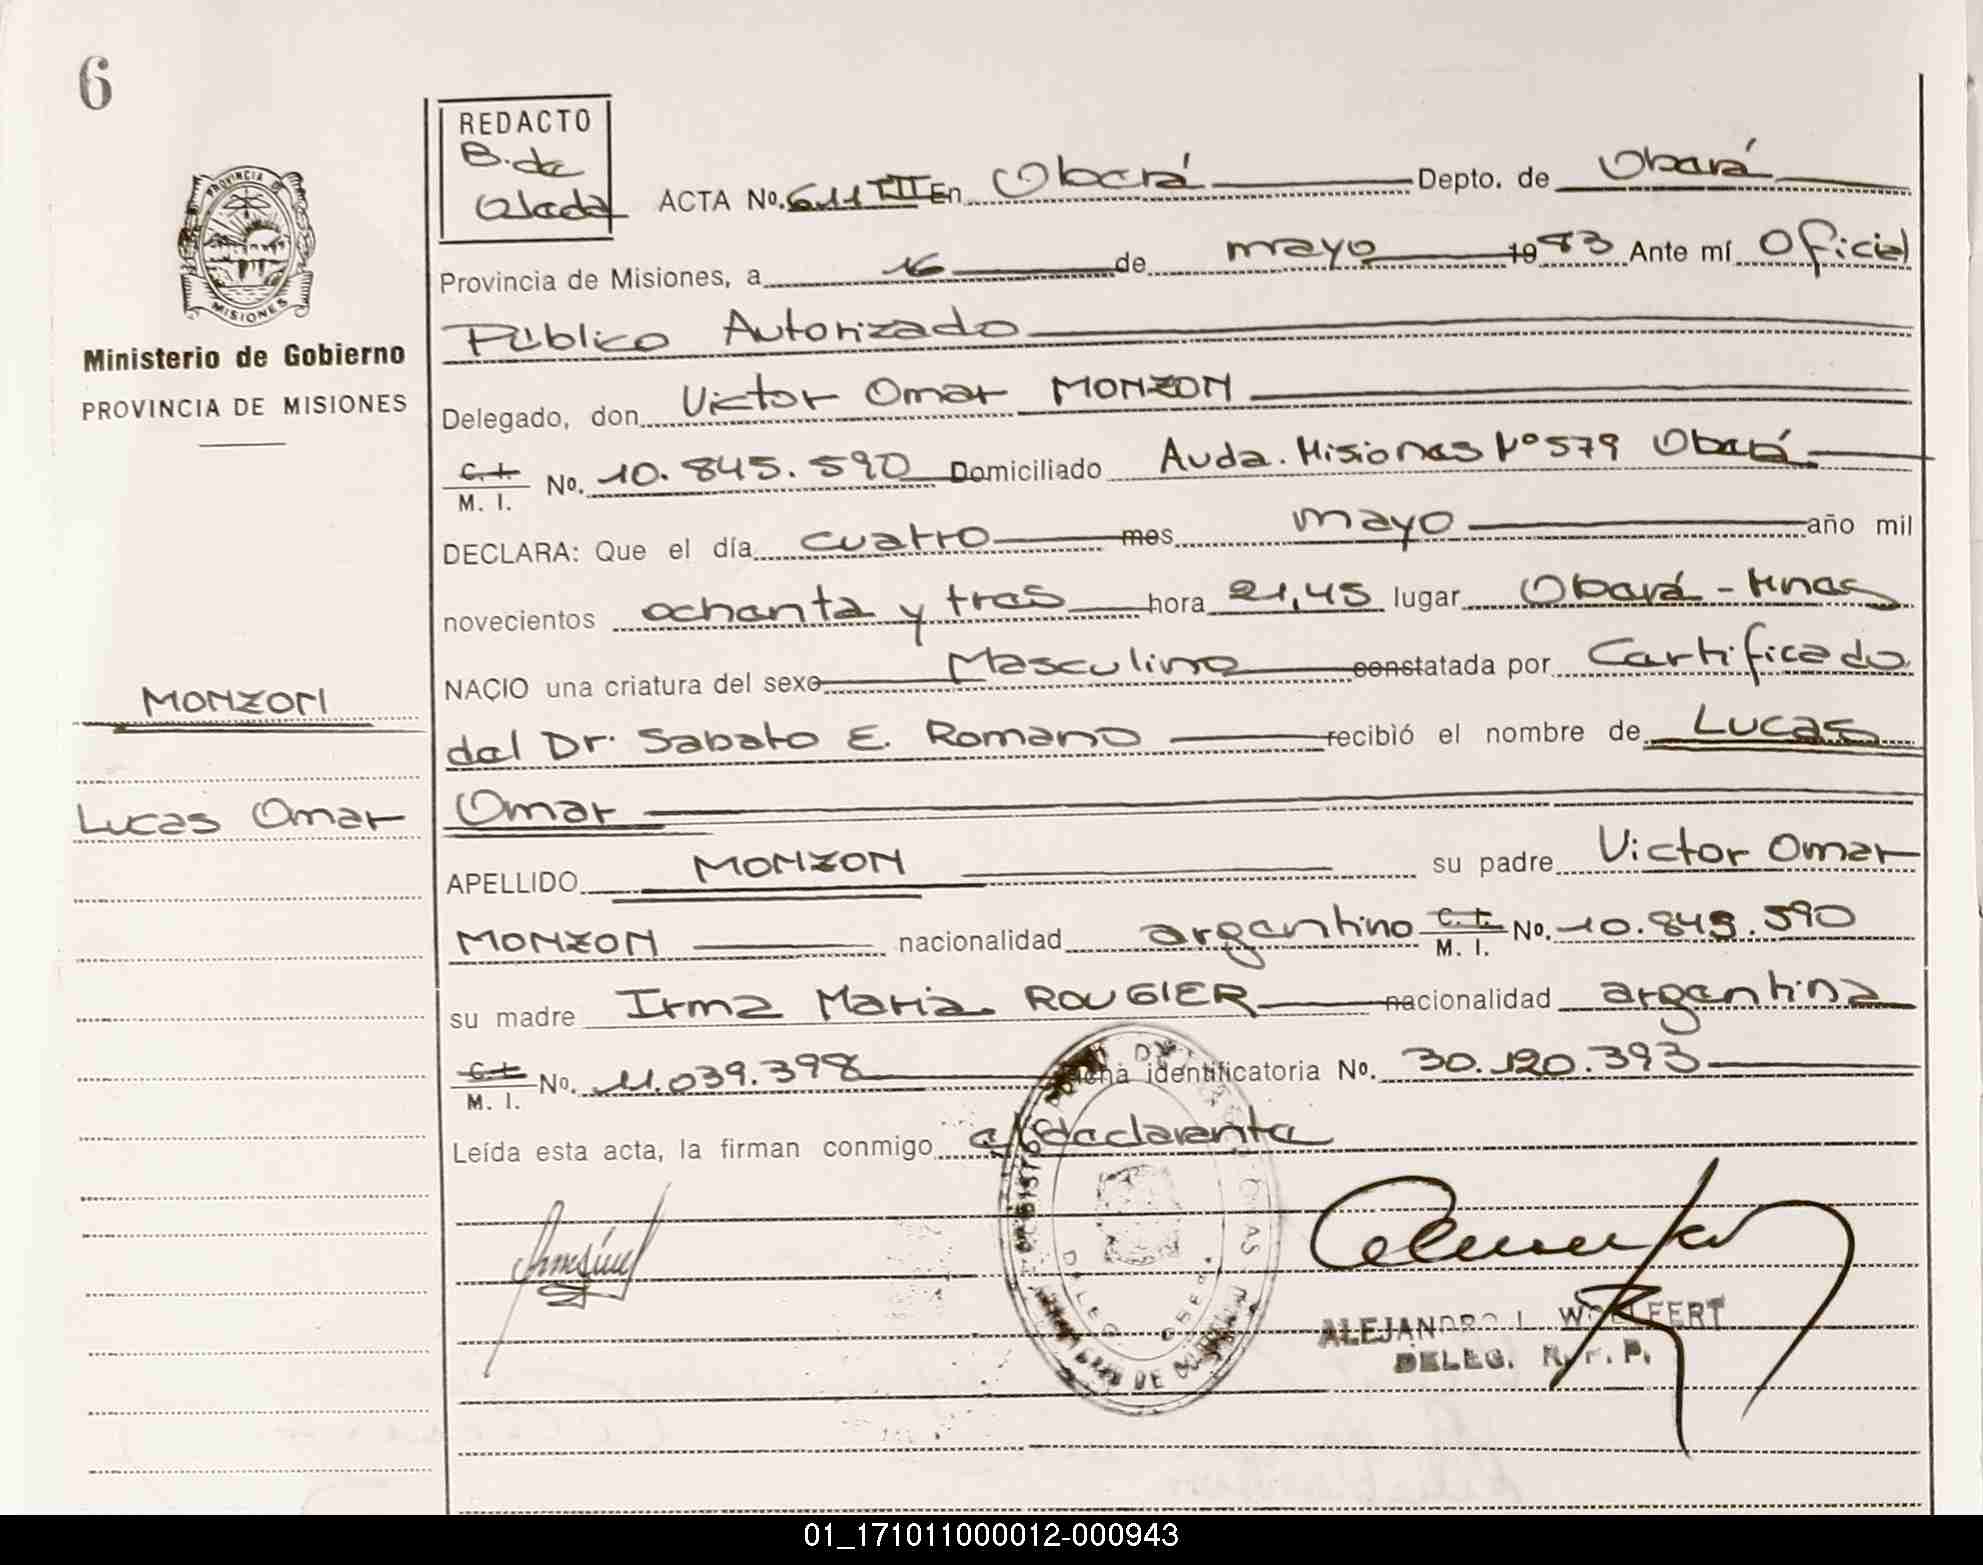 6
REDACTO
B. de
Olada
PROVINCIA DE
MISIONES
Ministerio de Gobierno
PROVINCIA DE MISIONES
ACTA No. 611 TIII En Oberá Depto. de Oberá
Provincia de Misiones, a 16 de mayo 1983 Ante mí Oficial
Público Autorizado
Delegado, don Victor Omar MONZON
C. I.
M. I. No. 10.845.590 Domiciliado Avda. Misiones Nº 579 Oberá
DECLARA: Que el día cuatro mes mayo año mil
novecientos ochenta y tres hora 21,45 lugar Oberá - Mnes
NACIO una criatura del sexo Masculino constatada por Certificado
del Dr. Sabato E. Romano recibió el nombre de Lucas
Omar
MONZON
Lucas Omar
APELLIDO MONZON su padre Victor Omar
MONZON nacionalidad argentino C. I.
M. I. No. 10.845.590
su madre Irma Maria ROUGIER nacionalidad argentina
C. I.
M. I. No. 11.039.398 Ficha identificatoria No. 30.120.393
Leída esta acta, la firman conmigo el declarante
ALEJANDRO L. WOLFERT
DELEG. R. P. P.
01_171011000012-000943